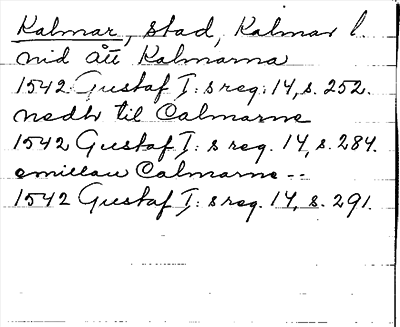 Kalmar, stad, Kalmar l.
nid ått Kalmarna
1542 Gustaf I: s reg. 14, s. 252.
nedh til Calmarne
1542 Gustaf I: s reg. 14, s. 284.
emillan Calmarne --
1542 Gustaf I: s reg. 14, s. 291.